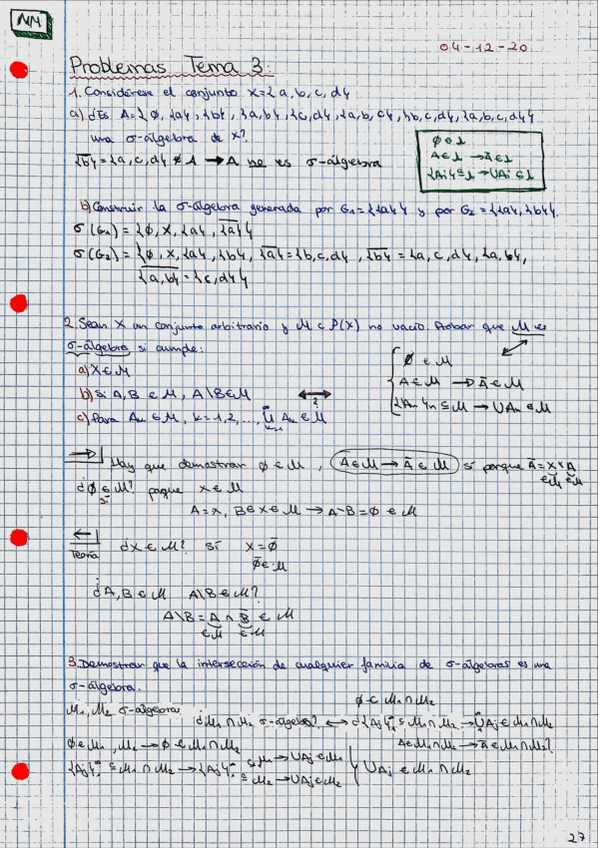 NM
04-12-20
Problemas Tema 3:
1. Considérese el conjunto X={a,b,c,d}
a) ¿Es A={∅,{a},{b},{a,b},{c,d},{a,b,c},{b,c,d},{a,b,c,d}}
una σ-álgebra de X?
{b}‾={a,c,d} ∉ A → A no es σ-álgebra
∅ ∈ A
A ∈ A → Ā ∈ A
{Ai} ⊆ A → ∪Ai ∈ A
b) Construir la σ-álgebra generada por G₁={{a}} y por G₂={{a},{b}}.
σ(G₁) = {∅, X, {a}, {a}‾}
σ(G₂) = {∅, X, {a}, {b}, {a}‾={b,c,d}, {b}‾={a,c,d}, {a,b},
{a,b}‾={c,d}}
2. Sean X un conjunto arbitrario y M ⊂ P(X) no vacío. Probar que M es
σ-álgebra si cumple:
a) X∈M
b) si A, B ∈ M, A\B∈M
c) Para An ∈ M, k=1,2,..., ∪ An ∈ M
↔ ?
∅ ∈ M
A∈M → Ā ∈ M
{An}n ⊆ M → ∪An ∈ M
→ Hay que demostrar ∅∈M, A∈M → Ā ∈ M sí porque Ā = X\A
∈M ∈M
¿∅ ∈ M? porque X∈M
sí
A=X, B∈X∈M → A\B=∅ ∈ M
← ¿X∈M? sí X=∅‾
Teoría
∅‾∈M
¿A,B∈M A\B∈M?
A\B = A ∩ B̄ ∈ M
∈M ∈M
3. Demostrar que la intersección de cualquier familia de σ-álgebras es una
σ-álgebra.
∅∈ M₁∩M₂
M₁, M₂ σ-álgebras
¿M₁∩M₂ σ-álgebra? ↔ ¿{Aj}₁ⁿ ⊆ M₁∩M₂ → ∪Aj ∈ M₁∩M₂
A∈M₁∩M₂ → Ā∈M₁∩M₂?
∅∈M₁, M₂ → ∅∈M₁∩M₂
{Aj}₁ⁿ ⊆ M₁∩M₂ → {Aj}₁ⁿ ⊆ M₁ → ∪Aj∈M₁
⊆ M₂ → ∪Aj∈M₂
∪Aj ∈ M₁∩M₂
27